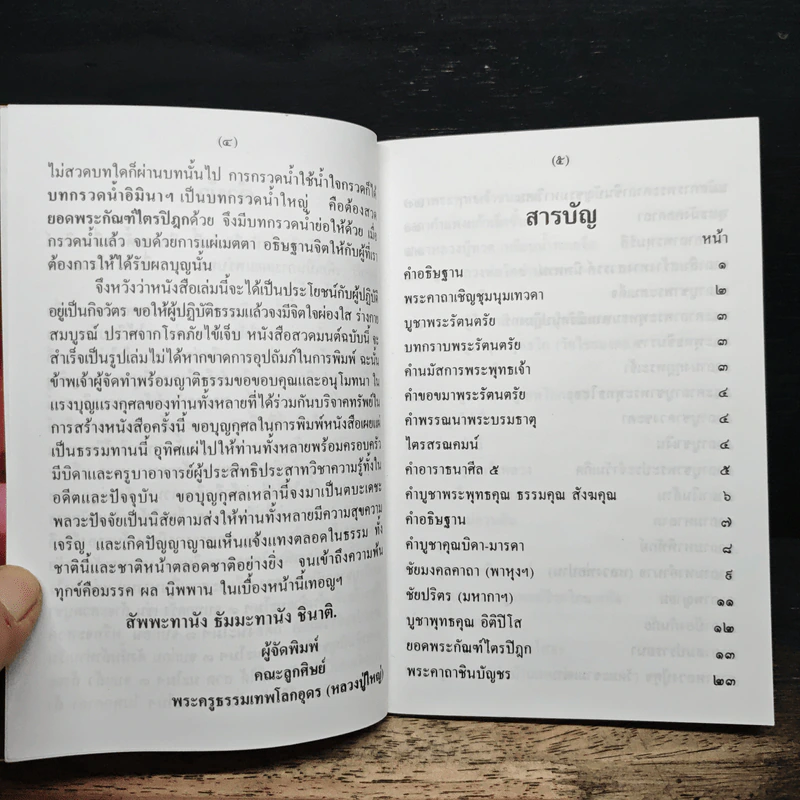 (๔)
ไม่สวดบทใดก็ผ่านบทนั้นไป การกรวดน้ำใช้น้ำใจกรวดก็ได้
บทกรวดน้ำอิมินาฯ เป็นบทกรวดน้ำใหญ่ คือต้องสวด
ยอดพระกัณฑ์ไตรปิฎกด้วย จึงมีบทกรวดน้ำย่อให้ด้วย เมื่อ
กรวดน้ำแล้ว จบด้วยการแผ่เมตตา อธิษฐานจิตให้กับผู้ที่เรา
ต้องการให้ได้รับผลบุญนั้น
จึงหวังว่าหนังสือเล่มนี้จะได้เป็นประโยชน์กับผู้ปฏิบัติ
อยู่เป็นกิจวัตร ขอให้ผู้ปฏิบัติธรรมแล้วจงมีจิตใจผ่องใส ร่างกาย
สมบูรณ์ ปราศจากโรคภัยไข้เจ็บ หนังสือสวดมนต์ฉบับนี้ จะ
สำเร็จเป็นรูปเล่มไม่ได้หากขาดการอุปถัมภ์ในการพิมพ์ ฉะนั้น
ข้าพเจ้าผู้จัดทำพร้อมญาติธรรมขอขอบคุณและอนุโมทนา ใน
แรงบุญแรงกุศลของท่านทั้งหลายที่ได้ร่วมกันบริจาคทรัพย์ใน
การสร้างหนังสือครั้งนี้ ขอบุญกุศลในการพิมพ์หนังสือเผยแผ่
เป็นธรรมทานนี้ อุทิศแผ่ไปให้ท่านทั้งหลายพร้อมครอบครัว
มีบิดาและครูบาอาจารย์ผู้ประสิทธิประสาทวิชาความรู้ทั้งใน
อดีตและปัจจุบัน ขอบุญกุศลเหล่านี้จงมาเป็นตบะเดชะ
พลวะปัจจัยเป็นนิสัยตามส่งให้ท่านทั้งหลายมีความสุขความ
เจริญ และเกิดปัญญาญาณเห็นแจ้งแทงตลอดในธรรม ทั้ง
ชาตินี้และชาติหน้าตลอดชาติอย่างยิ่ง จนเข้าถึงความพ้น
ทุกข์คือมรรค ผล นิพพาน ในเบื้องหน้านี้เทอญฯ
สัพพะทานัง ธัมมะทานัง ชินาติ.
ผู้จัดพิมพ์
คณะลูกศิษย์
พระครูธรรมเทพโลกอุดร (หลวงปู่ใหญ่)
(๕)
สารบัญ
หน้า
คำอธิษฐาน ๑
พระคาถาเชิญชุมนุมเทวดา ๒
บูชาพระรัตนตรัย ๓
บทกราบพระรัตนตรัย ๓
คำนมัสการพระพุทธเจ้า ๓
คำขอขมาพระรัตนตรัย ๔
คำพรรณนาพระบรมธาตุ ๔
ไตรสรณคมน์ ๔
คำอาราธนาศีล ๕ ๕
คำบูชาพระพุทธคุณ ธรรมคุณ สังฆคุณ ๖
คำอธิษฐาน ๗
คำบูชาคุณบิดา-มารดา ๘
ชัยมงคลคาถา (พาหุงฯ) ๙
ชัยปริตร (มหากาฯ) ๑๑
บูชาพุทธคุณ อิติปิโส ๑๒
ยอดพระกัณฑ์ไตรปิฎก ๑๓
พระคาถาชินบัญชร ๒๓